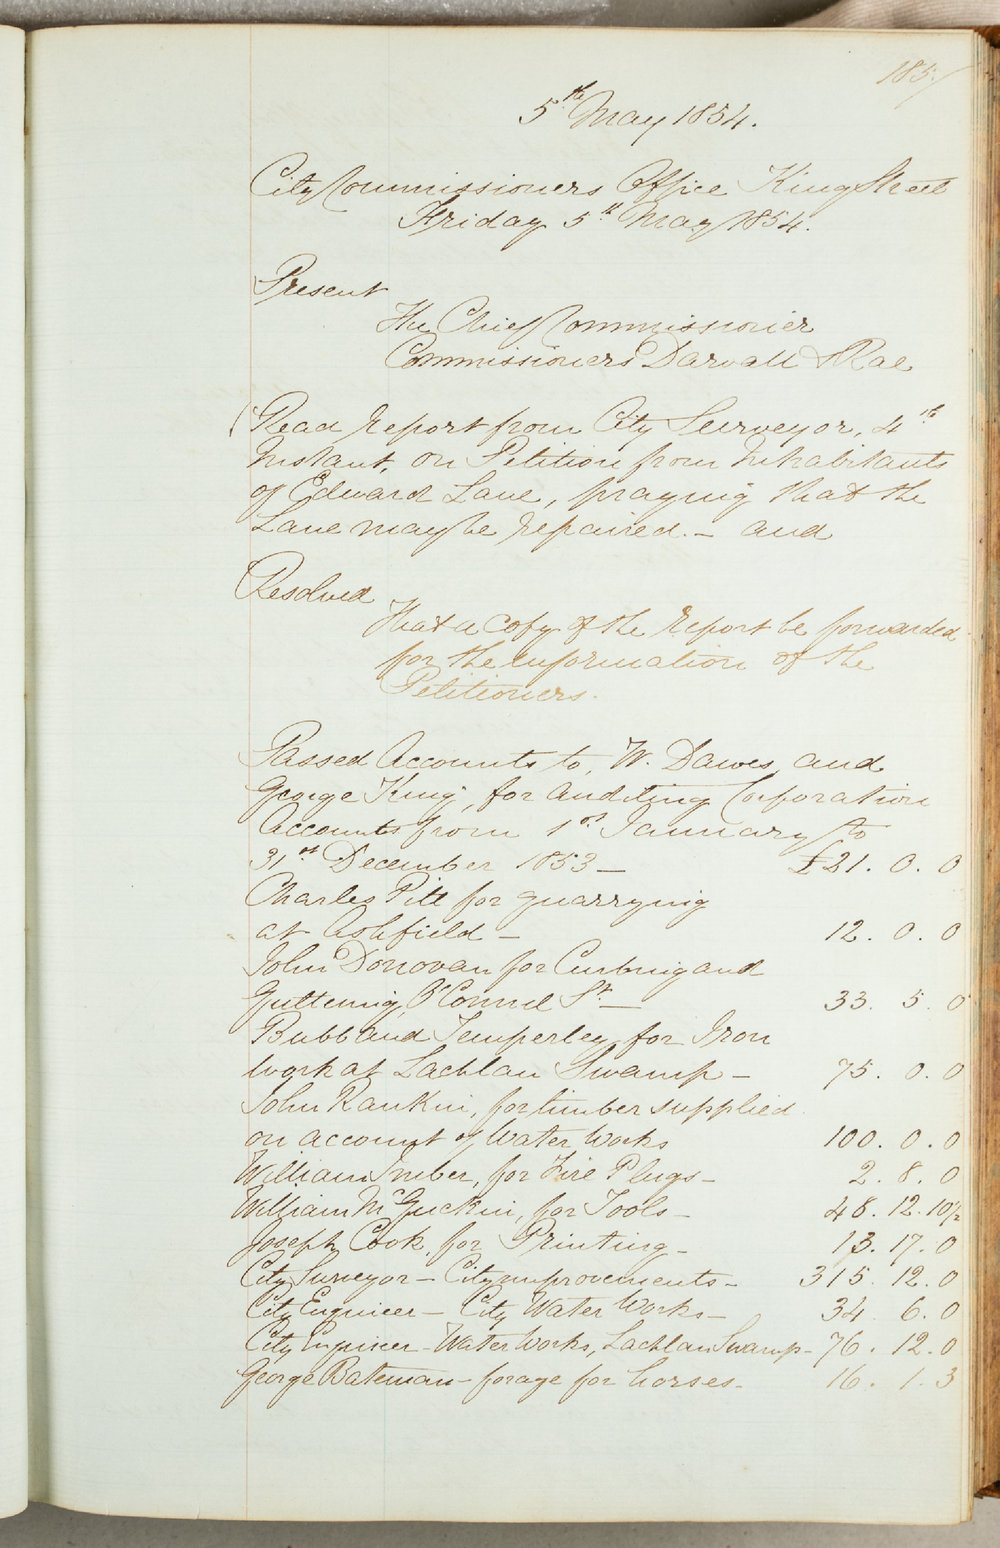 185
5th May 1854.
City Commissioners Office King Street
Friday 5th May 1854.
Present
The Chief Commissioner
Commissioners Darvall & Rae
Read report from City Surveyor, 4th
Instant, on Petition from Inhabitants
of Edward Lane, praying that the
Lane may be repaired. – and
Resolved
That a copy of the report be forwarded
for the information of the
Petitioners.
Passed Accounts to, W. Dawes, and
George King, for auditing Corporation
Accounts from 1st January to
31st December 1853 – £21. 0. 0
Charles Pitt for quarrying
at Ashfield – 12. 0. 0
John Donovan for Curbing and
Guttering, O'Connel St – 33. 5. 0
Bubb and Temperley for Iron
work at Lachlan Swamp – 75. 0. 0
John Rankin, for timber supplied
on account of Water Works 100. 0. 0
William for Fire Plugs – 2. 8. 0
William McGuckin, for Tools – 48. 12. 10½
Joseph Cook, for Printing – 13. 17. 0
City Surveyor – City improvements – 315. 12. 0
City Engineer – City Water Works – 34. 6. 0
City Engineer – Water Works, Lachlan Swamp – 76. 12. 0
George Bateman – forage for horses – 16. 1. 3